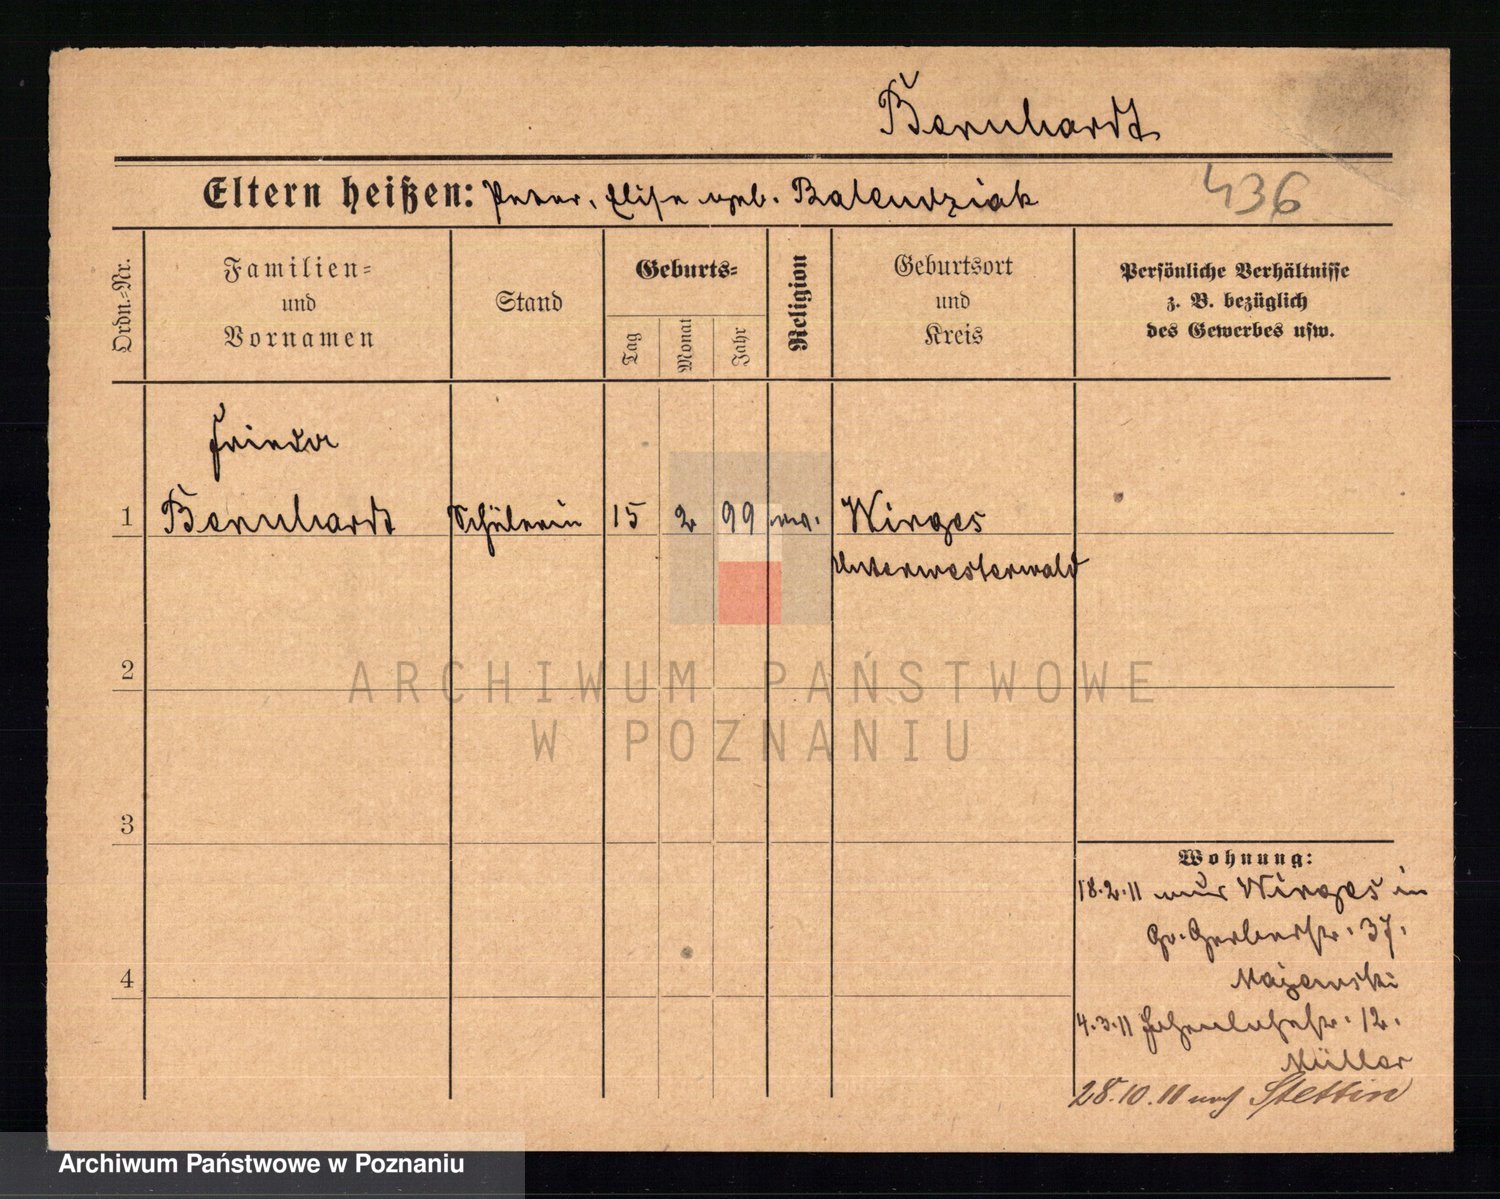 Bernhardt
Eltern heißen: Peter, Elise geb. Balendziak
436
Ordn.-Nr.
Familien-
und
Vornamen
Stand
Geburts-
Tag
Monat
Jahr
Religion
Geburtsort
und
Kreis
Persönliche Verhältnisse
z. B. bezüglich
des Gewerbes usw.
Frieda
1 Bernhardt Schülerin 15 2 99 Wirges
Unterwesterwald
2
3
4
Wohnung:
18.2.11 aus Wirges in
Gr. Gerberstr. 37.
Majewski
4.3.11 12.
Müller
28.10.11 nach Stettin
ARCHIWUM PAŃSTWOWE
W POZNANIU
Archiwum Państwowe w Poznaniu